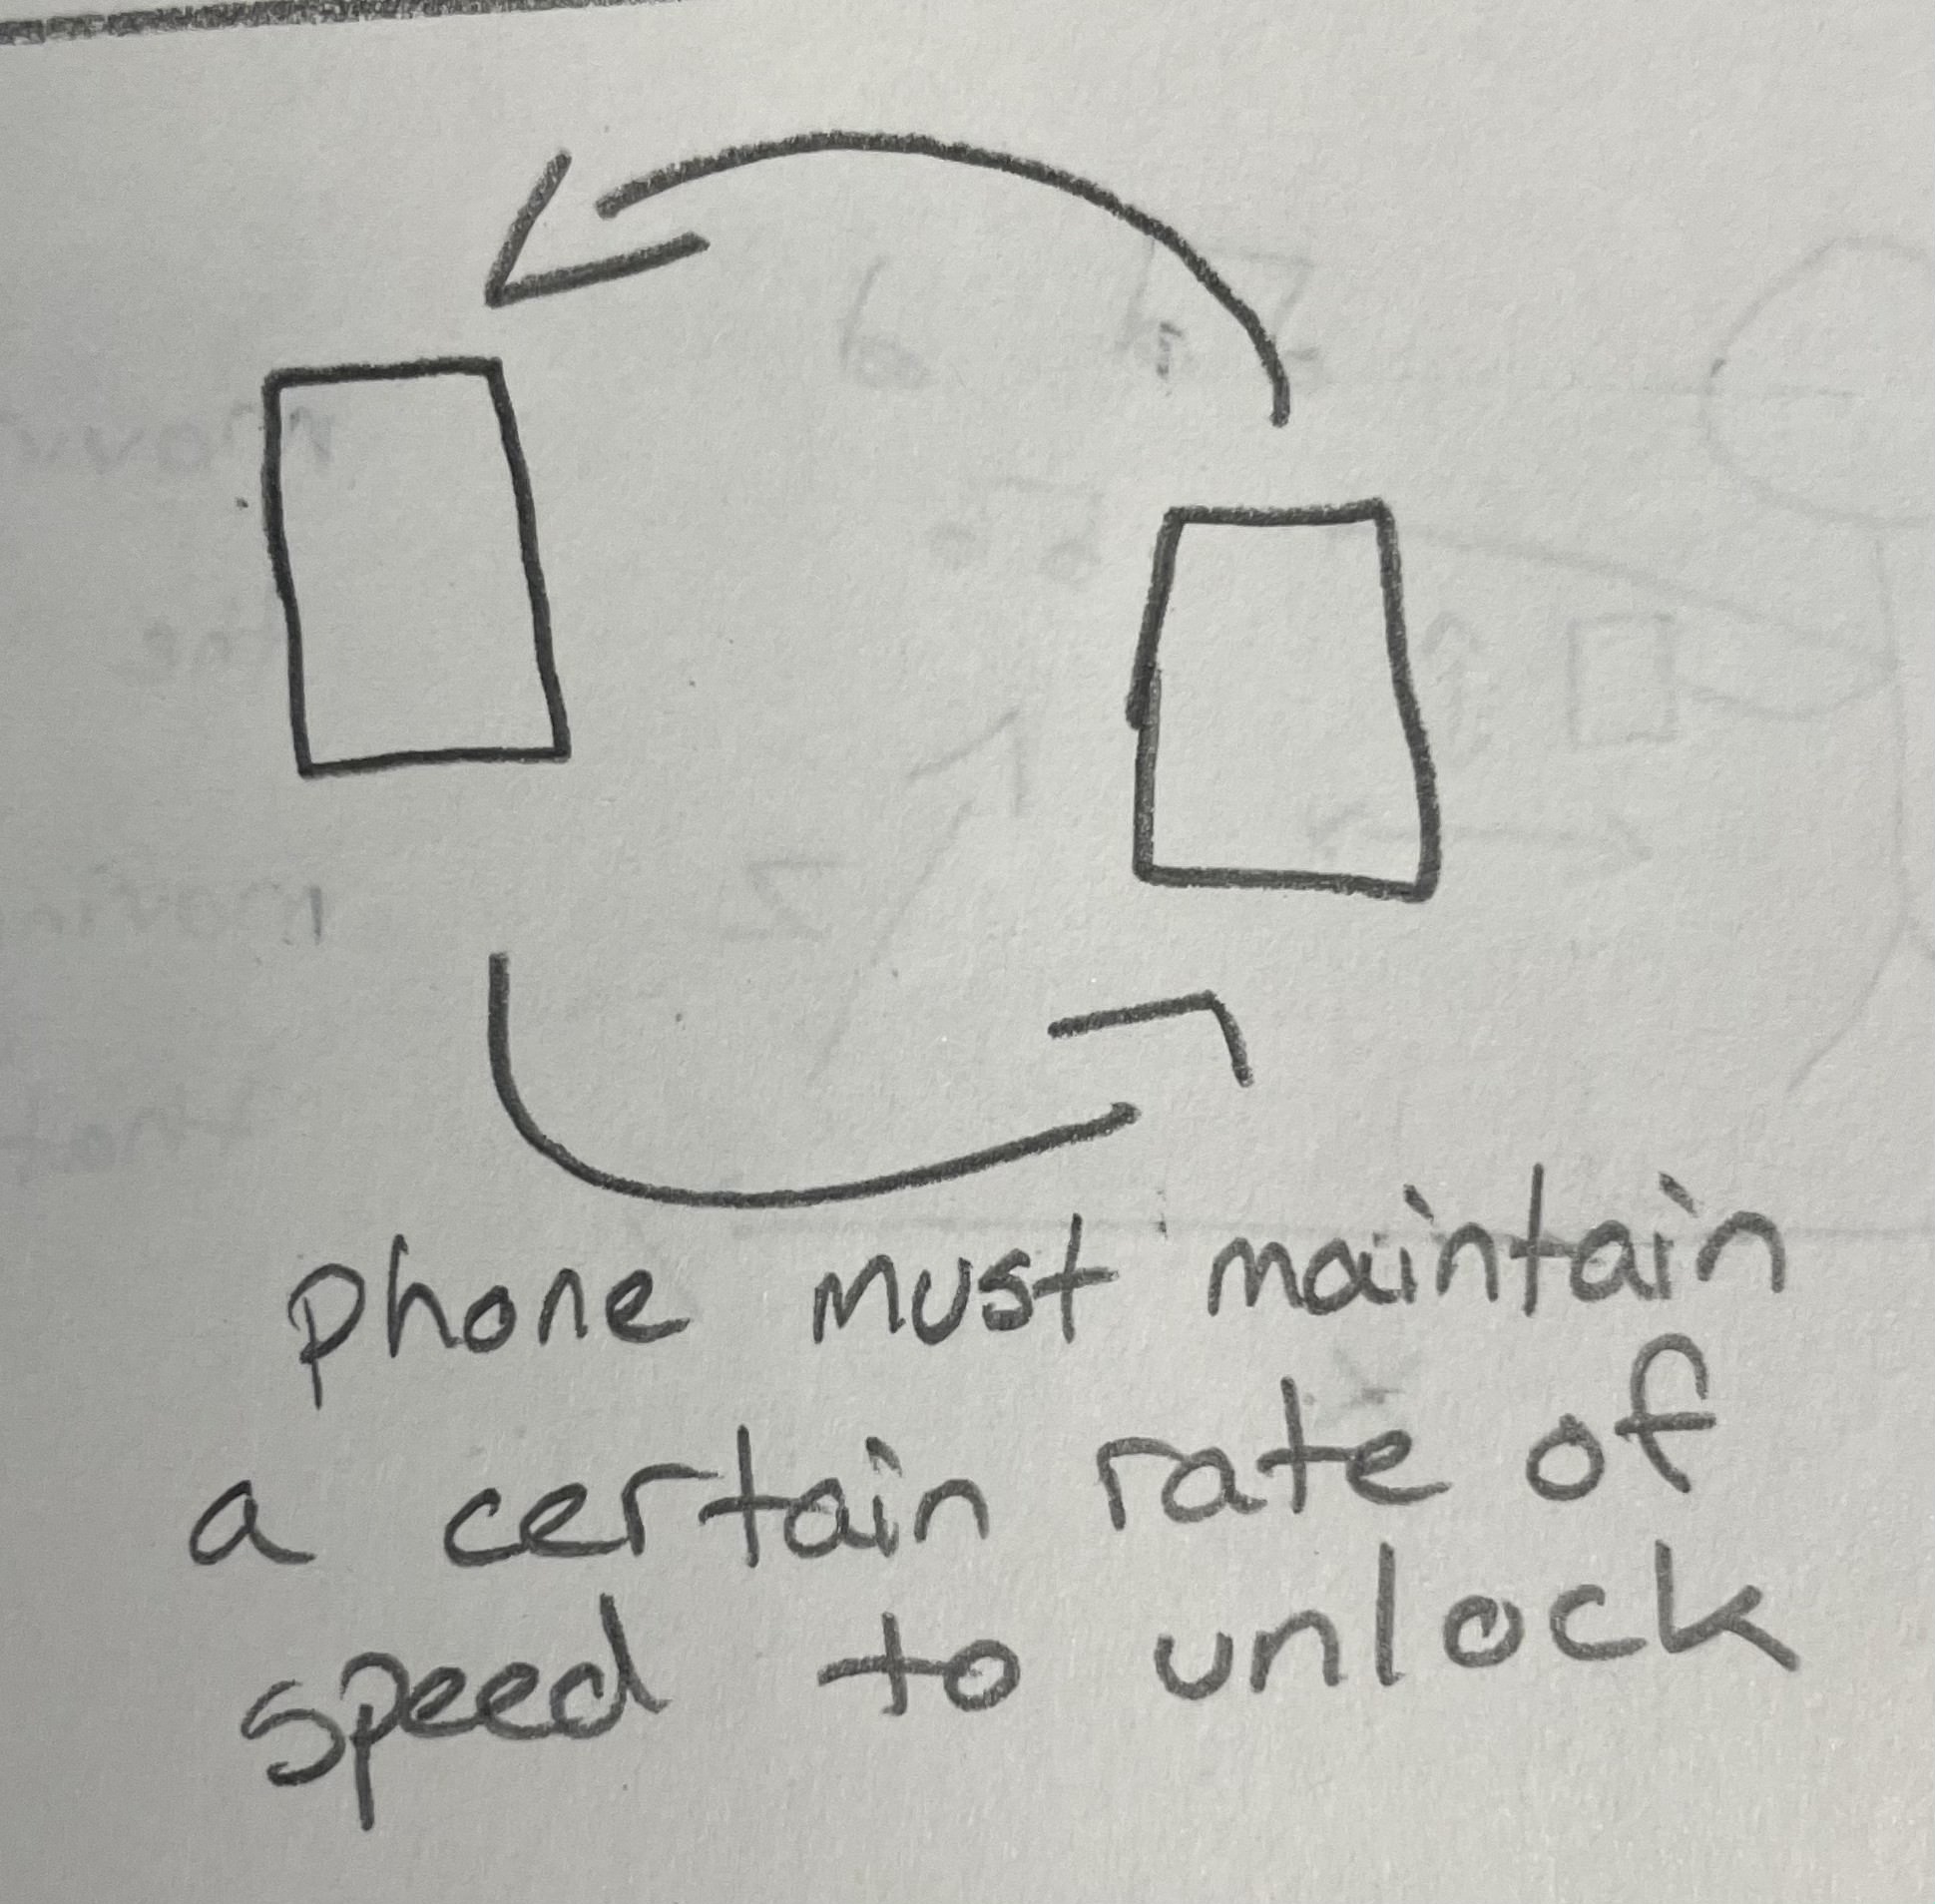 phone must maintain
a certain rate of
speed to unlock